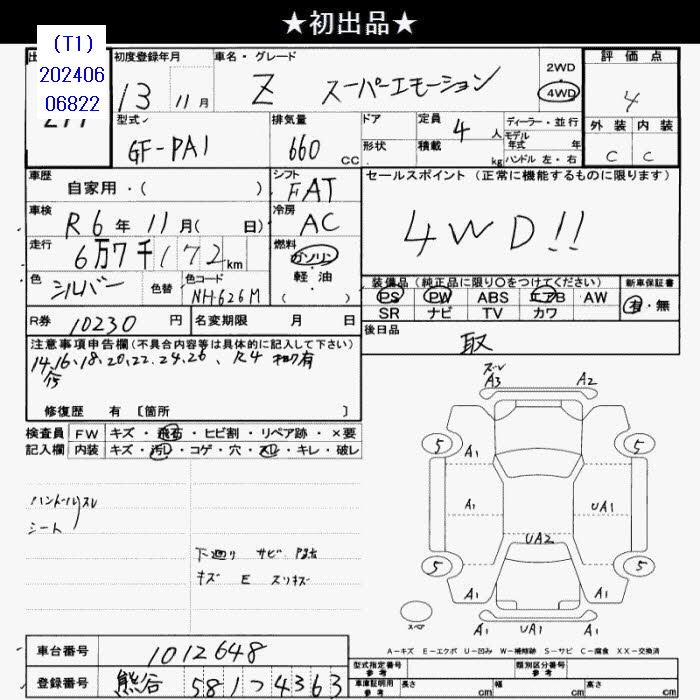 ★初出品★
(T1)
202406
06822
初度登録年月 13 11月
車名・グレード Z スーパーエモーション
2WD
4WD
評価点 4
外装 内装
C C
型式 GF-PA1
排気量 660 CC
ドア
形状
定員 4 人
積載 kg
ディーラー・並行
モデル
年式 年
ハンドル 左・右
車歴 自家用・( )
シフト FAT
セールスポイント(正常に機能するものに限ります)
4WD!!
車検 R6年 11月( 日)
冷房 AC
走行 6万7千172km
燃料 ガソリン
軽・油
( )
色 シルバー 色替
色コード NH626M
装備品(純正品に限り○をつけてください)
PS PW ABS エアB AW
SR ナビ TV カワ
新車保証書
有・無
R券 10230円
名変期限 月 日
後日品 取
注意事項申告欄(不具合内容等は具体的に記入して下さい)
14.16.18.20.22.24.26、R4
修復歴 有 〔箇所 〕
検査員 FW キズ・飛石・ヒビ割・リペア跡・×要
記入欄 内装 キズ・汚レ・コゲ・穴・スレ・キレ・破レ
ハンドルスレ
シート
下廻り サビ
キズ E スリキズ
A3 A2
5 A1 5
A1 UA1
UA2
5 A1 A1 5
A1 UA1 A1
スペア
A-キズ E-エクボ U-凹み W-補修跡 S-サビ C-腐食 XX-交換済
車台番号 1012648
登録番号 熊谷 581 つ 4363
型式指定番号
参考
類別区分番号
参考
車庫証明用
参考
長さ cm 幅 cm 高さ cm